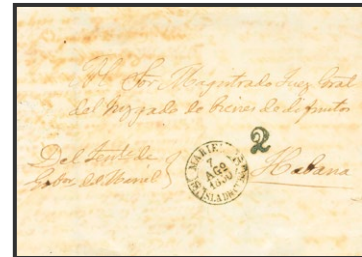 Al Sor Magistrado Juez Gral
del Juzgado de bienes de difuntos
Del Tente de
Gobor del Mariel
Habana
2
MARIEL
7
AGO
ISLA DE CUBA